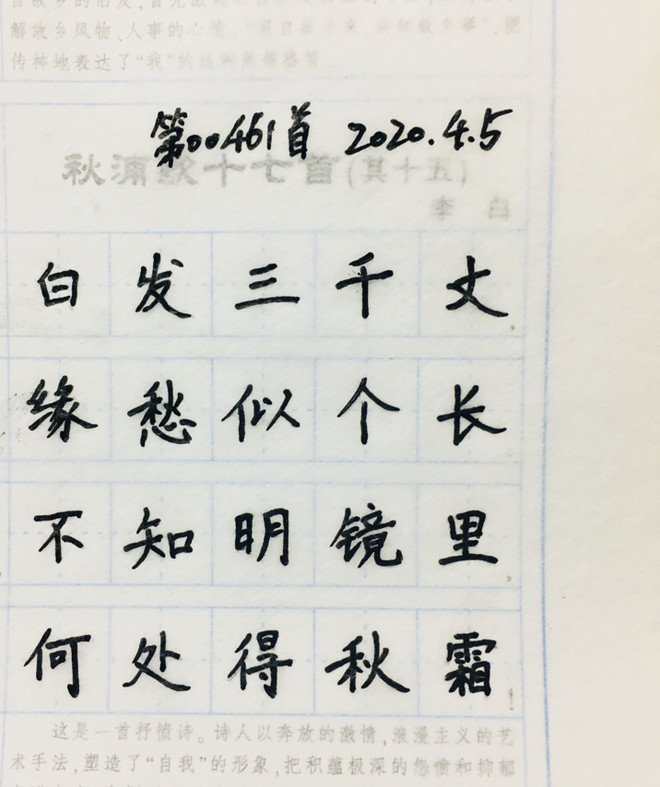 解故乡风物、人事的心情。
传神地表达了“我”的
第00461首 2020.4.5
秋浦歌十七首(其十五)
李白
白发三千丈
缘愁似个长
不知明镜里
何处得秋霜
这是一首抒愤诗。诗人以奔放的激情，浪漫主义的艺
术手法，塑造了“自我”的形象，把积蕴极深的怨愤和抑郁